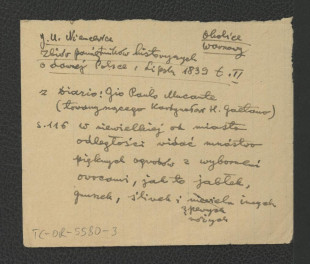 J. U. Niemcewicz
Okolice
Warszawy
Zbiór pamiętników historycznych
o dawnej Polsce, Lipsk 1839 t. II
z Diario: Gio Paulo Mucante
(towarzyszącego Kardynałowi H. Gaetano)
s. 116 w niewielkiej od miasta
odległości widać mnóstwo
pięknych ogrodów z wybornemi
owocami, jak to jabłek,
gruszek, śliwek i innych
TC-OR-5580-3